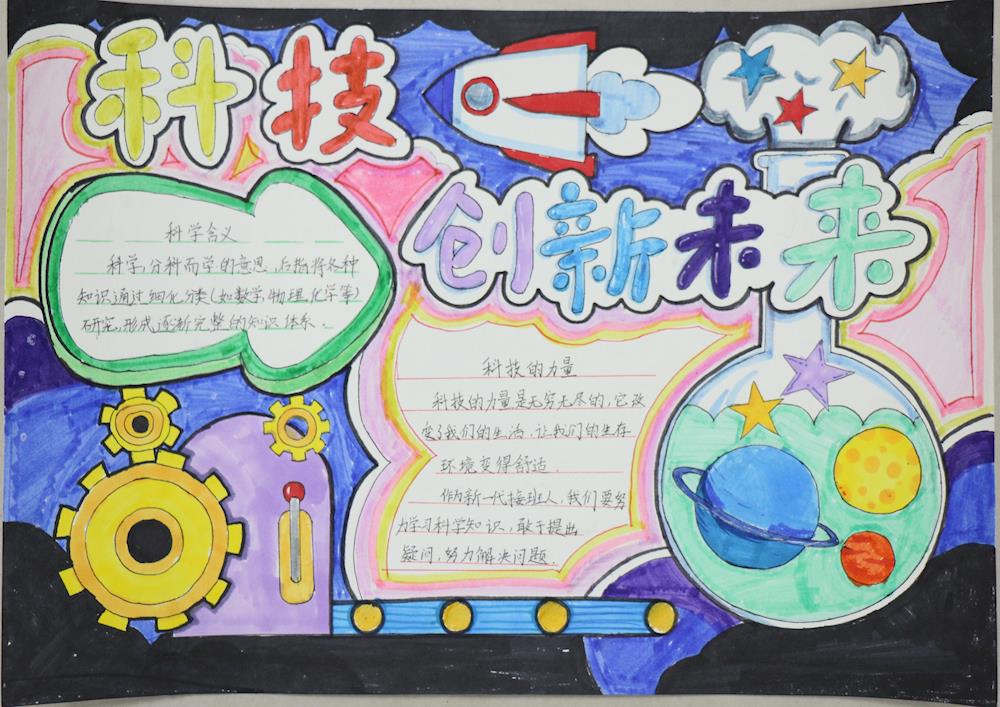 科技
创新未来
科学含义
科学，分科而学的意思，后指将各种
知识通过细化分类（如数学，物理，化学等）
研究，形成逐渐完整的知识体系。
科技的力量
科技的力量是无穷无尽的，它改
变了我们的生活，让我们的生存
环境变得舒适．
作为新一代接班人，我们要努
力学习科学知识，敢于提出
疑问，努力解决问题．